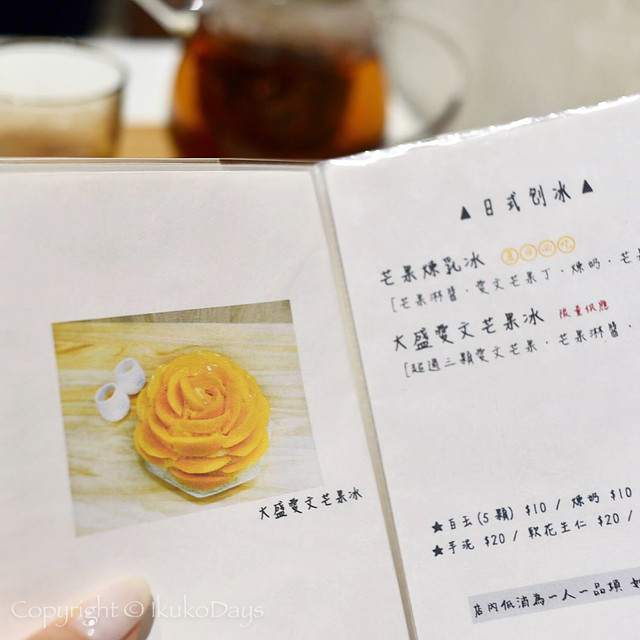 ▲日式刨冰▲
芒果煉乳冰
[芒果淋醬、愛文芒果丁、煉奶、芒
大盛愛文芒果冰 限量供應
[超過三顆愛文芒果、芒果淋醬、
大盛愛文芒果冰
★白玉(5顆) $10 / 煉奶 $10
★手泡 $20 / 軟花生仁 $20 /
店內低消為一人一品項
Copyright © IkukoDays